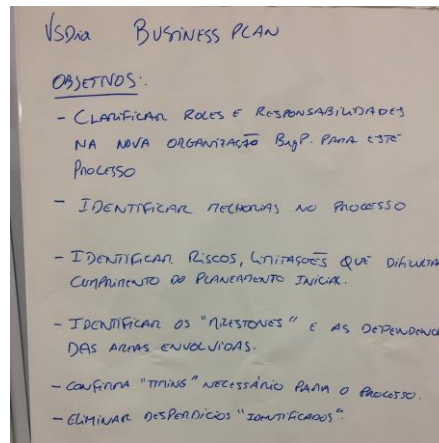 VSDia BUSINESS PLAN
OBJETIVOS:.
- CLARIFICAR ROLES E RESPONSABILIDADES
NA NOVA ORGANIZAÇÃO BrgP. PARA ESTE
PROCESSO
- IDENTIFICAR MELHORIAS NO PROCESSO
- IDENTIFICAR RISCOS, LIMITAÇÕES QUE DIFICULTA
CUMPRIMENTO DO PLANEAMENTO INICIAL.
- IDENTIFICAR OS "MILESTONES" E AS DEPENDENC
DAS AREAS ENVOLVIDAS.
- CONFIRMA "TIMING" NECESSÁRIO PARA O PROCESSO.
- ELIMINAR DESPERDICIOS "IDENTIFICADOS".